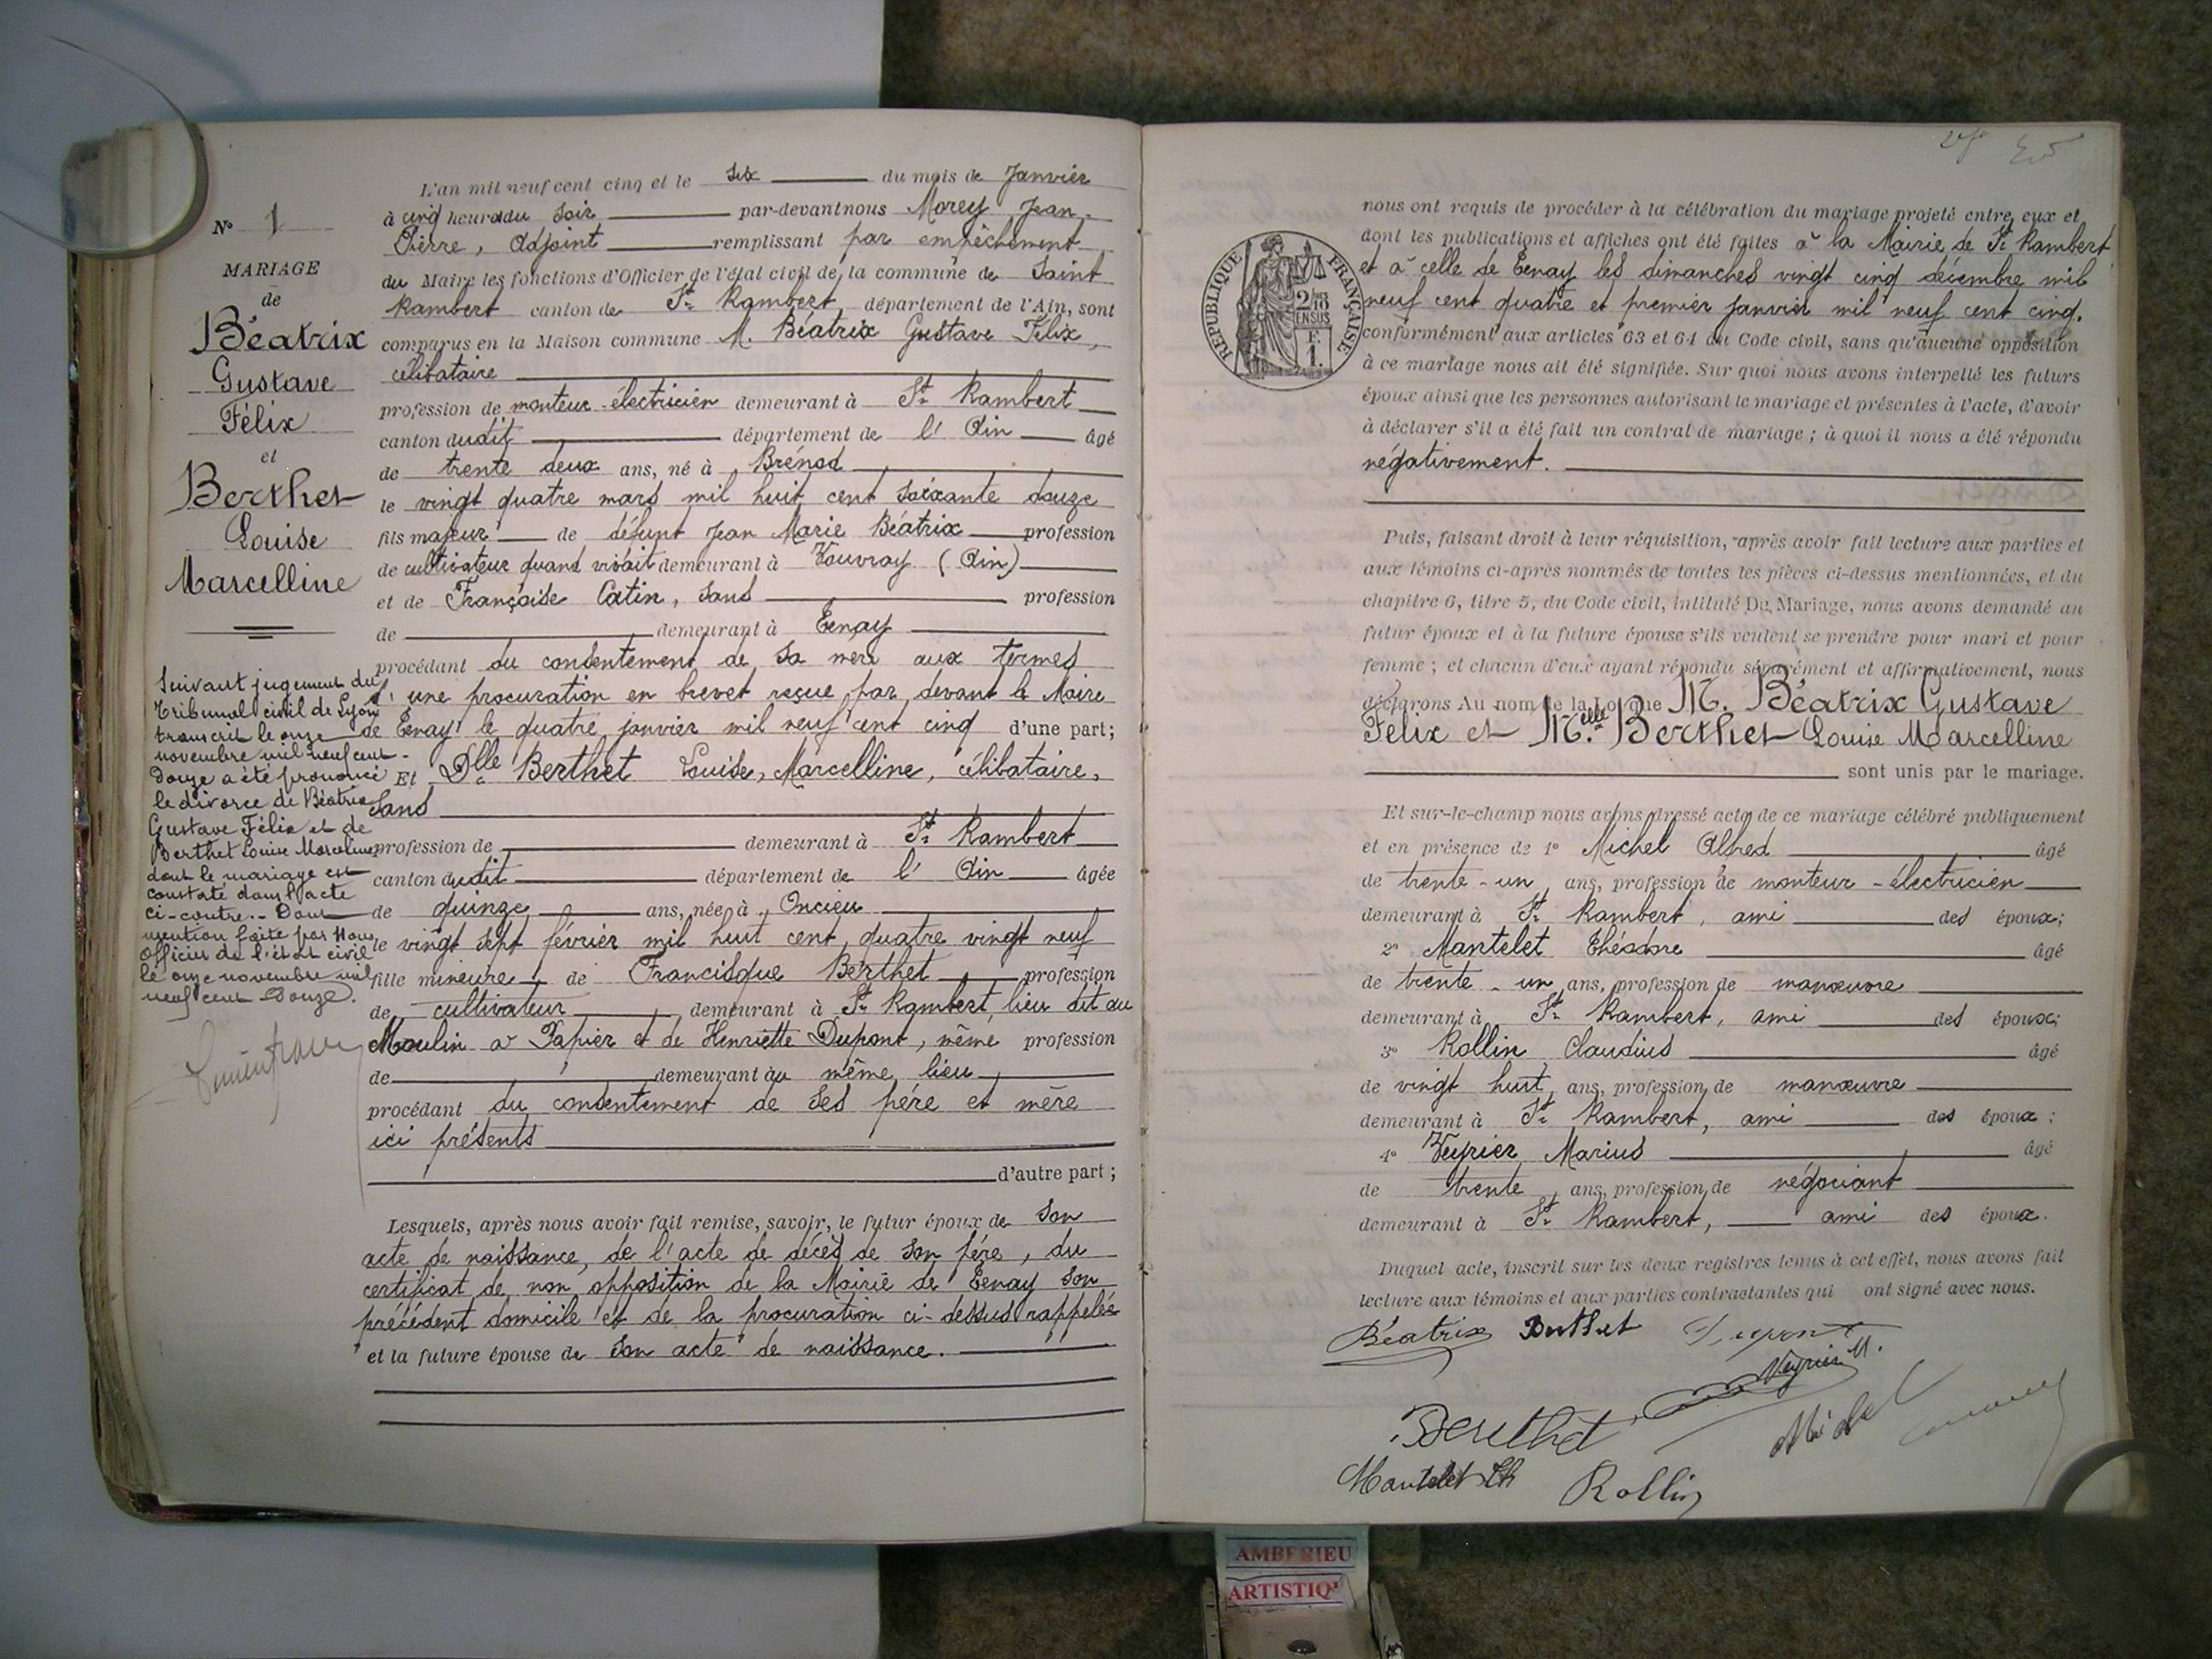 N° 1
MARIAGE
de
Béatrix
Gustave
Félix
et
Berthet
Louise
Marcelline
Suivant jugement du
Tribunal civil de Lyon
transcrit le onze
novembre mil neuf cent
douze a été prononcé
le divorce de Béatrix
Gustave Félix et de
Berthet Louise Marcelline
dont le mariage est
constaté dans l'acte
ci-contre.- Dont
mention faite par Nous
Officier de l'état civil
le onze novembre mil
neuf cent douze.
L'an mil neuf cent cinq et le six du mois de Janvier
à cinq heures du soir par-devant nous Morey Jean
Pierre, Adjoint remplissant par empêchement
du Maire les fonctions d'Officier de l'état civil de la commune de Saint
Rambert canton de St Rambert département de l'Ain, sont
comparus en la Maison commune M. Béatrix Gustave Félix,
célibataire
profession de monteur-électricien demeurant à St Rambert
canton dudit département de l'Ain âgé
de trente deux ans, né à Brénod
le vingt quatre mars mil huit cent soixante douze
fils majeur de défunt Jean Marie Béatrix profession
de cultivateur quand vivait demeurant à Vouvray (Ain)
et de Françoise Catin, sans profession
de demeurant à Tenay
procédant du consentement de sa mère aux termes
d'une procuration en brevet reçue par devant le Maire
de Tenay le quatre janvier mil neuf cent cinq d'une part;
Et Dlle Berthet Louise, Marcelline, célibataire,
sans
profession de demeurant à St Rambert
canton dudit département de l'Ain âgée
de quinze ans, née à Oncieu
le vingt sept février mil huit cent quatre vingt neuf
fille mineure de Francisque Berthet profession
de cultivateur demeurant à St Rambert, lieu dit au
Moulin à Papier et de Henriette Dupont, même profession
de demeurant au même lieu
procédant du consentement de ses père et mère
ici présents
d'autre part;
Lesquels, après nous avoir fait remise, savoir, le futur époux de Son
acte de naissance, de l'acte de décès de son père, du
certificat de non opposition de la Mairie de Tenay son
précédent domicile et de la procuration ci-dessus rappelée
et la future épouse de son acte de naissance.
RÉPUBLIQUE FRANÇAISE
2/10 EN SUS
F. 1.
nous ont requis de procéder à la célébration du mariage projeté entre eux et
dont les publications et affiches ont été faites à la Mairie de St Rambert
et à celle de Tenay les dimanches vingt cinq décembre mil
neuf cent quatre et premier janvier mil neuf cent cinq.
conformément aux articles 63 et 64 du Code civil, sans qu'aucune opposition
à ce mariage nous ait été signifiée. Sur quoi nous avons interpellé les futurs
époux ainsi que les personnes autorisant le mariage et présentes à l'acte, d'avoir
à déclarer s'il a été fait un contrat de mariage ; à quoi il nous a été répondu
négativement.
Puis, faisant droit à leur réquisition, après avoir fait lecture aux parties et
aux témoins ci-après nommés de toutes les pièces ci-dessus mentionnées, et du
chapitre 6, titre 5, du Code civil, intitulé Du Mariage, nous avons demandé au
futur époux et à la future épouse s'ils veulent se prendre pour mari et pour
femme ; et chacun d'eux ayant répondu séparément et affirmativement, nous
déclarons Au nom de la Loi que M. Béatrix Gustave
Félix et Melle Berthet Louise Marcelline
sont unis par le mariage.
Et sur-le-champ nous avons dressé acte de ce mariage célébré publiquement
et en présence de 1° Michel Alfred âgé
de trente-un ans, profession de monteur-électricien
demeurant à St Rambert, ami des époux;
2° Mantelet Théodore âgé
de trente-un ans, profession de manœuvre
demeurant à St Rambert, ami des époux;
3° Rollin Claudius âgé
de vingt huit ans, profession de manœuvre
demeurant à St Rambert, ami des époux;
4° Veyrier Marius âgé
de trente ans, profession de négociant
demeurant à St Rambert, ami des époux.
Duquel acte, inscrit sur les deux registres tenus à cet effet, nous avons fait
lecture aux témoins et aux parties contractantes qui ont signé avec nous.
Béatrix Berthet Dupont
Veyrier M.
Berthet Michel
Mantelet Th Rollin
AMBERIEU
ARTISTIQ